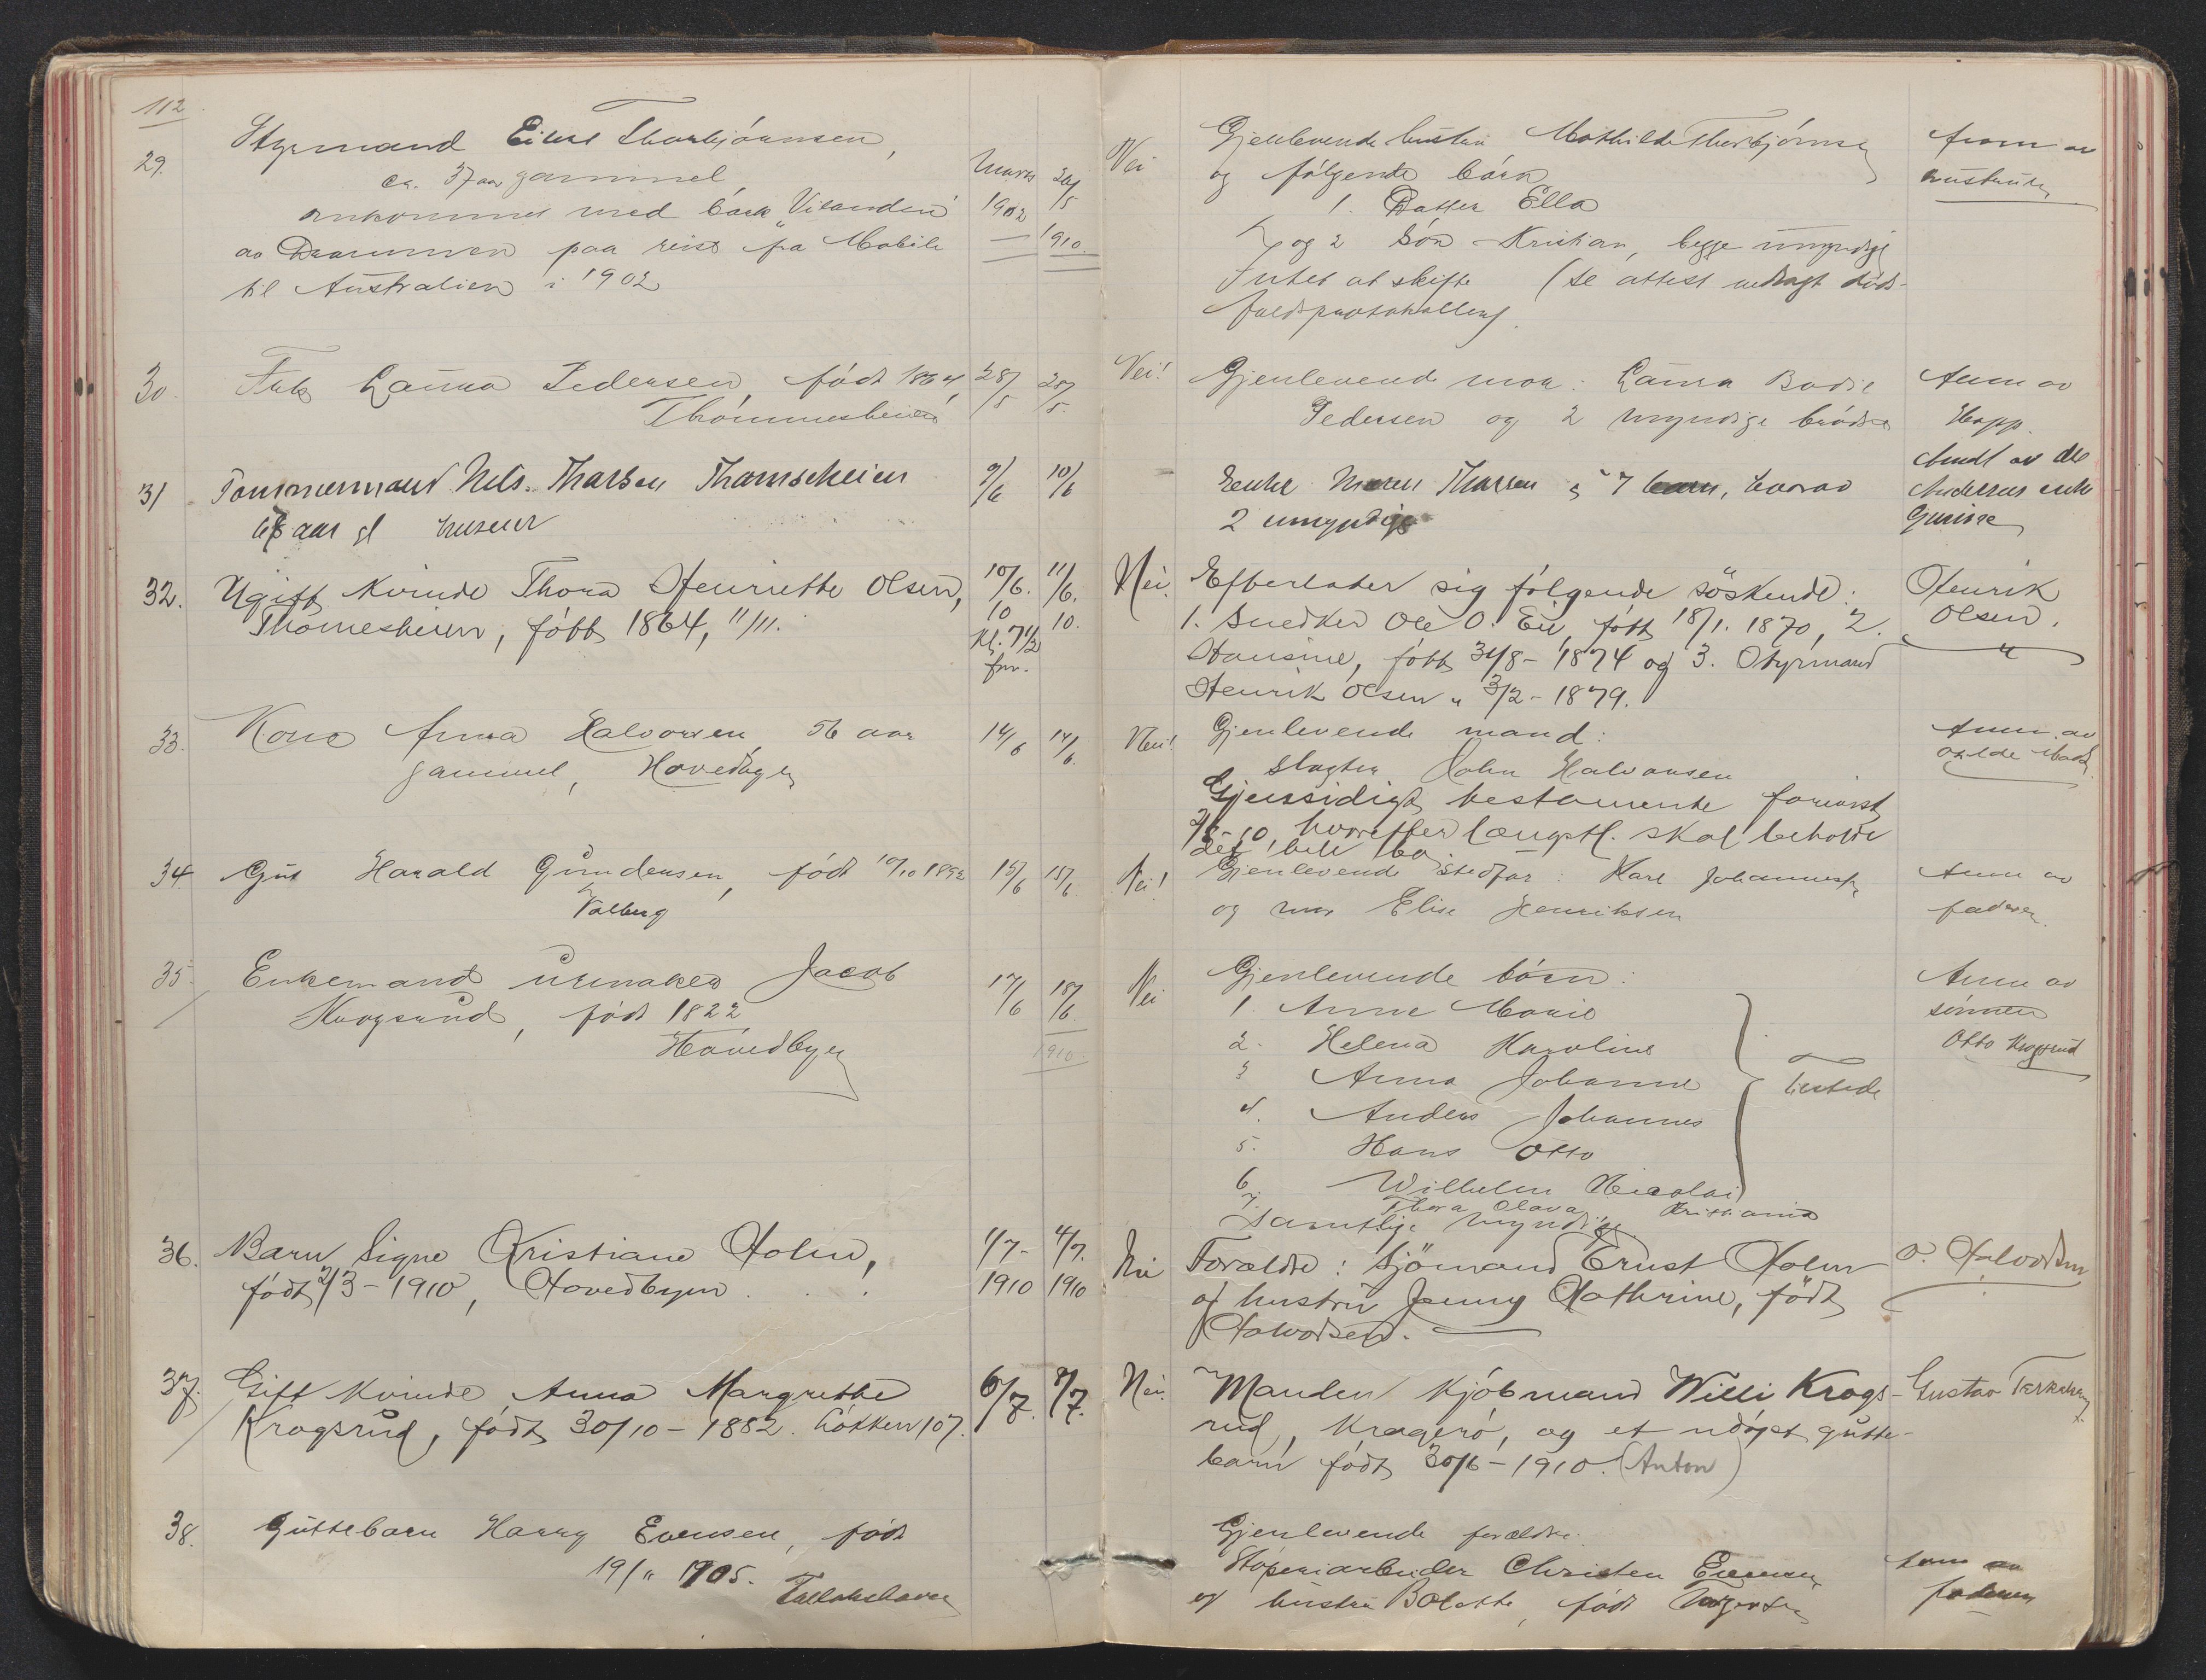 112
29. Styrmand Einar Thorbjörnsen,
ca. 37 aar gammel
ankommer med bark "Vilanden"
av Drammen paa reise fra Mobile
til Australien i 1902
Marts 1902
24/5 1910.
Nei
Gjenlevende hustru Mathilde Thorbjörnsen
og følgende børn
1. Datter Ella
og 2 Søn Kristian, begge umyndige
Intet at skifte (se attest vedlagt døds-
faldsprotokollen)
Anm av
hustruen
30. Frk Laura Pedersen, født 1864,
Thommesheien
28/5 28/5.
Nei!
Gjenlevende mor: Laura Bodil
Pedersen og 2 myndige brødre
Anm av
31 Tømmermand Nils Tharsen Thomsheien
aar gl
9/6 10/6
Enke Maren Tharsen & 7 barn, hvorav
2 umyndige
Anmdt av
32. Ugift kvinde Thora Henriette Olsen,
Thomesheien, født 1864, 11/11.
10/6. 10 Kl. 7 1/2 fm.
11/6. 10.
Nei.
Efterlater sig følgende söskende:
1. Snedker Ole O. Eie, født 18/1. 1870, 2.
Hansine, født 31/8 - 1874 og 3. Styrmand
Henrik Olsen " 3/2 - 1879.
Henrik
Olsen.
33. Kone Anna Halvorsen 56 aar
gammel, Hovedbyen
14/6 14/6.
Nei!
Gjenlevende mand:
Slagter John Halvorsen
Gjensidigt testamente forevist
hvorefter længstl. skal beholde
det hele bo
Anm. av
34 Gut Harald Gundersen, født 10/10 1892
Valberg
15/6 15/6
Nei!
Gjenlevende stedfar: Karl Johannesen
og mor Elise Henriksen
Anm av
faderen.
35. Enkemand urmaker Jacob
Krogsrud, født 1822
Hovedbyen
17/6 18/6. 1910.
Nei
Gjenlevende børn:
1. Anne Marie
2. Helena Karoline
3 Anna Johanne
4. Anders Johannes
5. Hans Otto
6. Wilhelm Nicolai
7. Thora Olava Kristiania
Samtlige myndige
Tilstede
Anm av
sønnen
Otto Krogsrud
36. Barn Signe Kristiane Holm,
født 2/3 - 1910, Hovedbyen.
1/7 - 1910
4/7. 1910
Nei
Forældre: Sjömand Ernst Holm
og hustru Jenny Kathrine, født
Halvorsen.
O. Halvorsen
37. Gift kvinde Anna Margrethe
Krogsrud, født 30/10 - 1882. Løkken 107.
6/7. 8/7.
Nei.
Manden Kjøbmand Willi Krogs-
rud, Kragerø, og et udøpt gutte-
barn født 30/6 - 1910. (Anton)
Gustav
38. Guttebarn Harry Evensen, født
19/11 1905. Tallakshavn
Gjenlevende forældre:
Støperiarbeider Christen Evensen
og hustru Bolette, født
Anm av
faderen